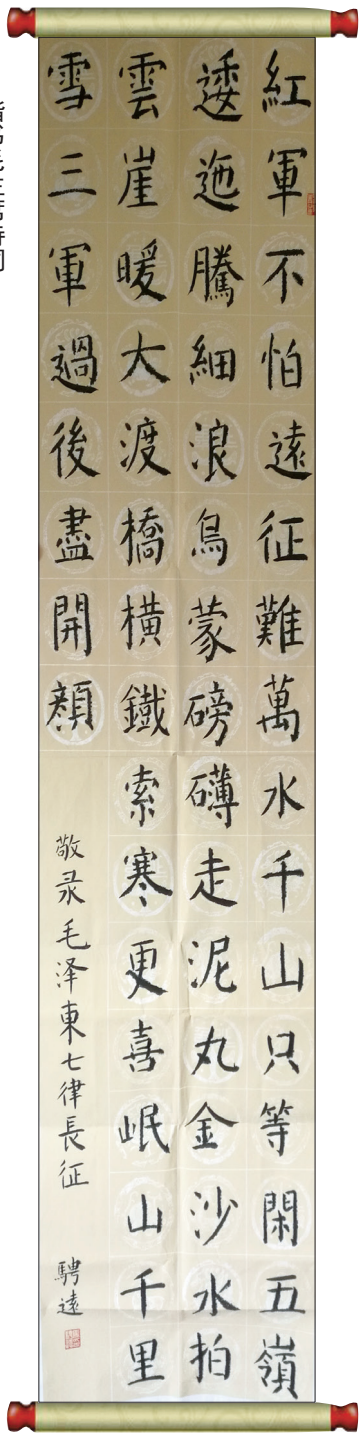 紅軍不怕遠征難萬水千山只等閑五嶺
逶迤騰細浪烏蒙磅礴走泥丸金沙水拍
雲崖暖大渡橋橫鐵索寒更喜岷山千里
雪三軍過後盡開顏
敬录毛泽東七律長征 騁遠